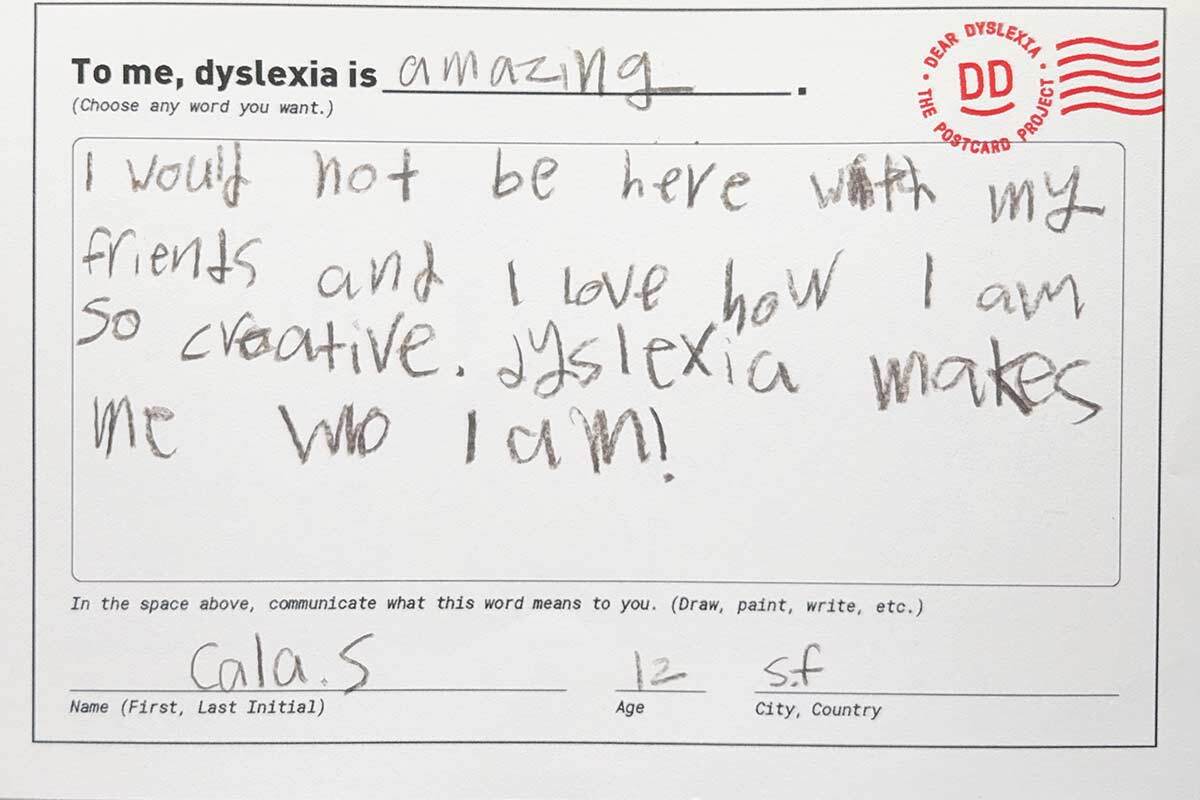 To me, dyslexia is amazing.
(Choose any word you want.)
DEAR DYSLEXIA • THE POSTCARD PROJECT •
DD
I would not be here with my
friends and I love how I am
so creative. dyslexia makes
me who I am!
In the space above, communicate what this word means to you. (Draw, paint, write, etc.)
Cala.S 12 s.f
Name (First, Last Initial) Age City, Country